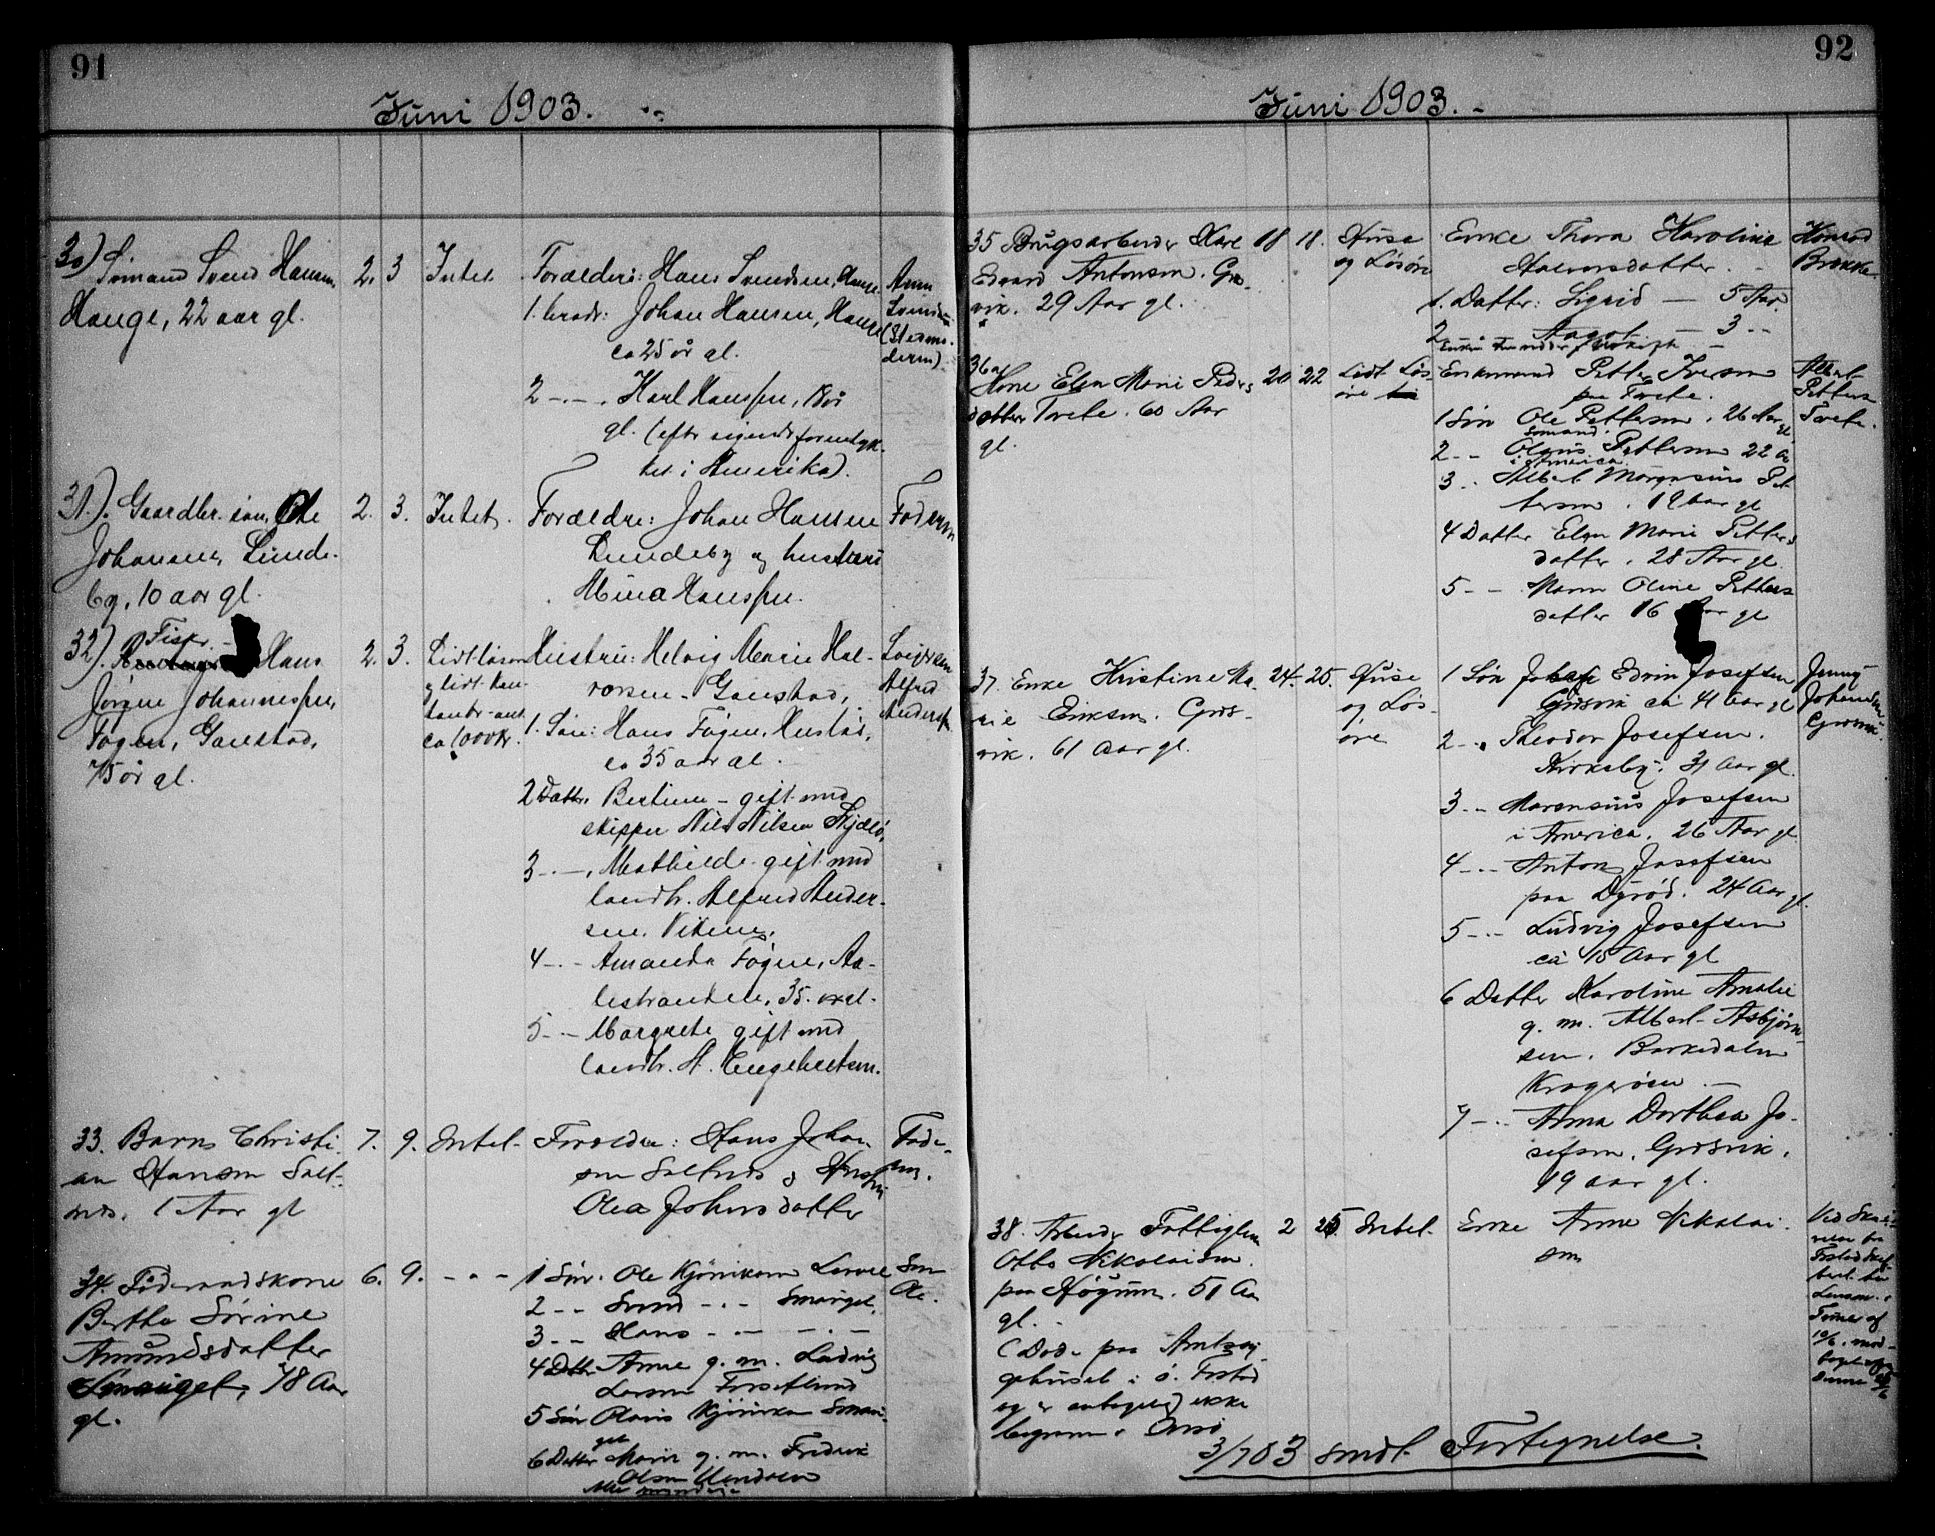 91
Juni 1903.
30)
Sömand Svend Hansen
Hauge, 22 aar gl.
2. 3 Intet
Forældre: Hans Svendsen, Hauge
1. brodr: Johan Hansen, Hauge
ca 25 år gl.
2 -.- Karl Hanssen, 18 år
gl. (eftr sigende forentlig
i Amerika).
Anne
Svendsen
31). Gaardbr. søn, Ole
Johansen, Lunde-
by, 10 aar gl.
2. 3. Intet.
Forældre: Johan Hansen
Lundeby og hustru
Mina Hanssen.
Faderen
32). Fiskr. Hans
Jørgen Johannessen,
Føgen, Ganstad,
75 år gl.
2. 3. Lidt løsøre
og lidt kon-
ca 1000 Kr.
Hustru: Helvig Marie Hal-
vorsen - Ganstad,
1. Søn: Hans Føgen,
ca 35 aar gl.
2 Dattr. Bertine - gift med
skipper Nils Nilsen Skjælö,
3 -.-, Mathilde gift med
landh. Alfred Ander-
sen. Viken.
4 -.- Amanda Føgen, Aa-
lestranden, 35.
5 -.- Margrete gift med
landh. A. Engebretsen.
Svigersøn
Alfred
Andersen
33. Barn Christi-
an Hansen Salt-
næs. 1 Aar gl
7. 9. Intet.
Forældre: Hans Johan-
sen Saltnæs og Hustru
Olea Johnsdatter
Fade-
ren.
34. Föderaadskone
Berthe Sörine
Amundsdatter
Smauget, 78 Aar
gl.
6. 9. - " -
1 Sön. Ole Kjöniksen
2 - - Svend - . - Smauget.
3 - - Hans - . -
4 Dattr Anne g. m. Ludvig
Larsen
5 Sön Olavis Kjöniksen Smau-
get
6 Datter Marie g. m. Fredrik
Olsen
Alle myndige
Søn
Ole.
92
Juni 1903.
35 Brugsarbeider Karl
Edvard Antonsen. Græs-
vik. 29 Aar gl.
18 18. Huse
og Løsøre
Enke Thora Karoline
Halvorsdatter.
1. Datter: Sigrid — 5 Aar.
2 Aagot — 3 --
Konrad
Brække
36
Kone Elen Marie Peders
datter Tvete. 60 Aar
gl.
20 22 Lidt Løs-
øre
Enkemand Petter Iversen
paa Tvete.
1 Sön Ole Pettersen. 26 Aar gl
sømand.
2 - - Olaus Pettersen 22 Aar
i America.
3 - Albert Morgensius Pet-
tersen. 19 aar gl
4 Datter Elen Marie Petters
datter. 28 Aar gl.
5 - - Maren Oline Petters
datter 16 Aar gl
Albert
Pettersen
Tvete.
37. Enke Kristine Ma-
rie Eriksen. Græs-
vik. 61 aar gl.
24. 25. Huse
og Løs-
øre
1 Søn Johan Edvin Josefsen
Græsvik ca 41 Aar gl
2 - . Theodor Josefsen.
Kirkeby. 31 Aar gl.
3 - - Marensius Josefsen
i America. 26 Aar gl
4 -.- Anton Josefsen
paa Dyrød. 24 Aar gl.
5 -.- Ludvig Josefsen
ca 15 Aar gl
6 Datter Karoline Amalie
g. m. Albert Asbjørn-
sen. Barkedalen
Kragerøen
7 -.. Anna Dorthea Jo-
sefsen, Græsvik.
19 aar gl.
Jenny
Johansen
Græsvik.
38. Arbeider Fattiglem
Otto Nikolaisen.
paa Høgum. 51 Aar
gl.
(Død. paa Amtssy-
gehuset i ö. Fredstad
og er antagelig ikke
begraven i Onsö
2 25 Intet.
Enke Anna Nikolai-
sen
3/7 03 sendt Fortegnelse.